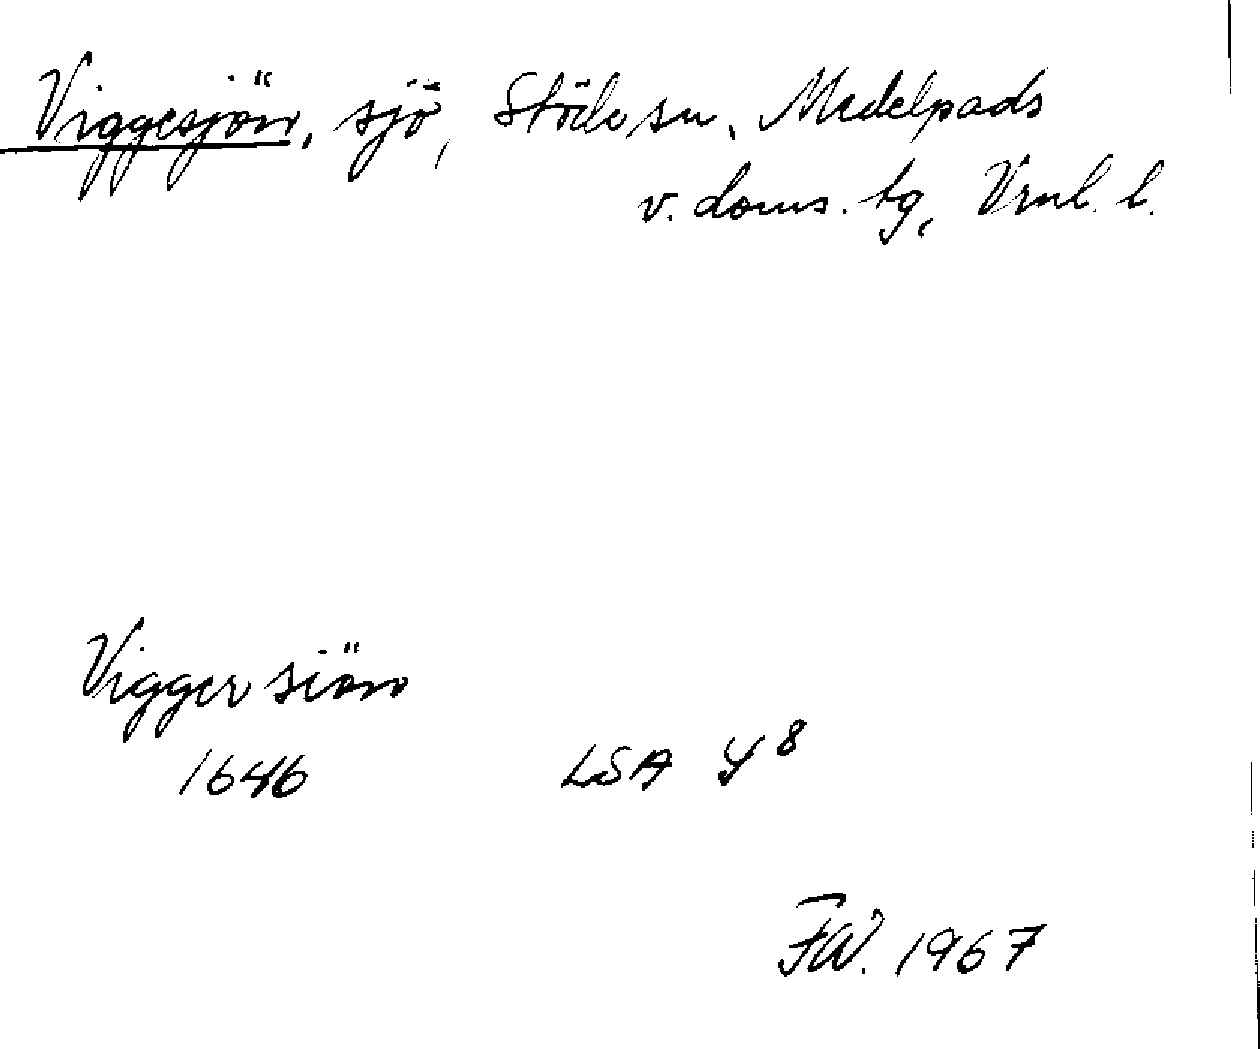 Viggesjön, sjö, Stöde sn, Medelpads
v. doms. tg, Vrnl. l.
Vigger siön
1646 LSA Y 8
FW. 1967